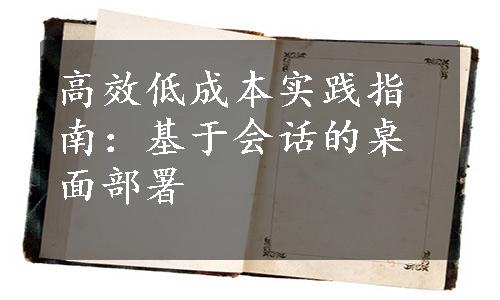 高效低成本实践指
南：基于会话的桌
面部署